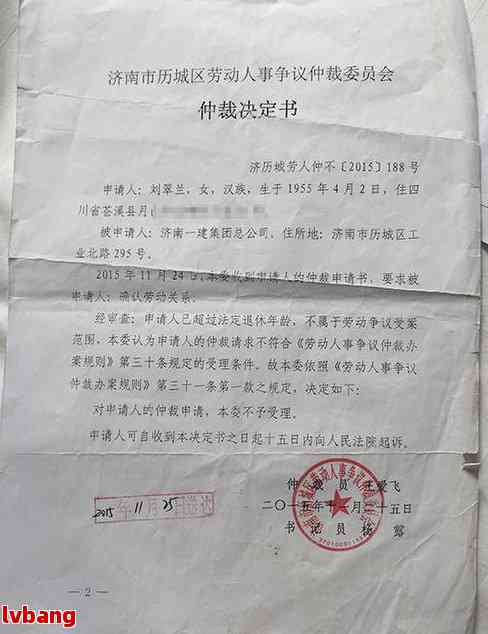 济南市历城区劳动人事争议仲裁委员会
仲裁决定书
济历城劳人仲不〔2015〕188 号
申请人：刘翠兰，女，汉族，生于 1955 年 4 月 2 日，住四
川省苍溪县月
被申请人：济南一建集团总公司，住所地：济南市历城区工
业北路 295 号。
2015 年 11 月 24 日，本委收到申请人的仲裁申请书，要求被
申请人：确认劳动关系。
经审查：申请人已超过法定退休年龄，不属于劳动争议受案
范围，本委认为申请人的仲裁请求不符合《劳动人事争议仲裁办
案规则》第三十条规定的受理条件。故本委依照《劳动人事争议
仲裁办案规则》第三十一条第一款之规定，决定如下：
对申请人的仲裁申请，本委不予受理。
申请人可自收到本决定书之日起十五日内向人民法院起诉。
仲 裁 员 王爱飞
2015 年 11 月 25 日送达
二〇一五年十一月二十五日
书 记 员 杨
— 2 —
lvbang